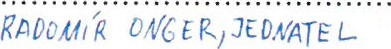 RADOMÍR ONGER, JEDNATEL